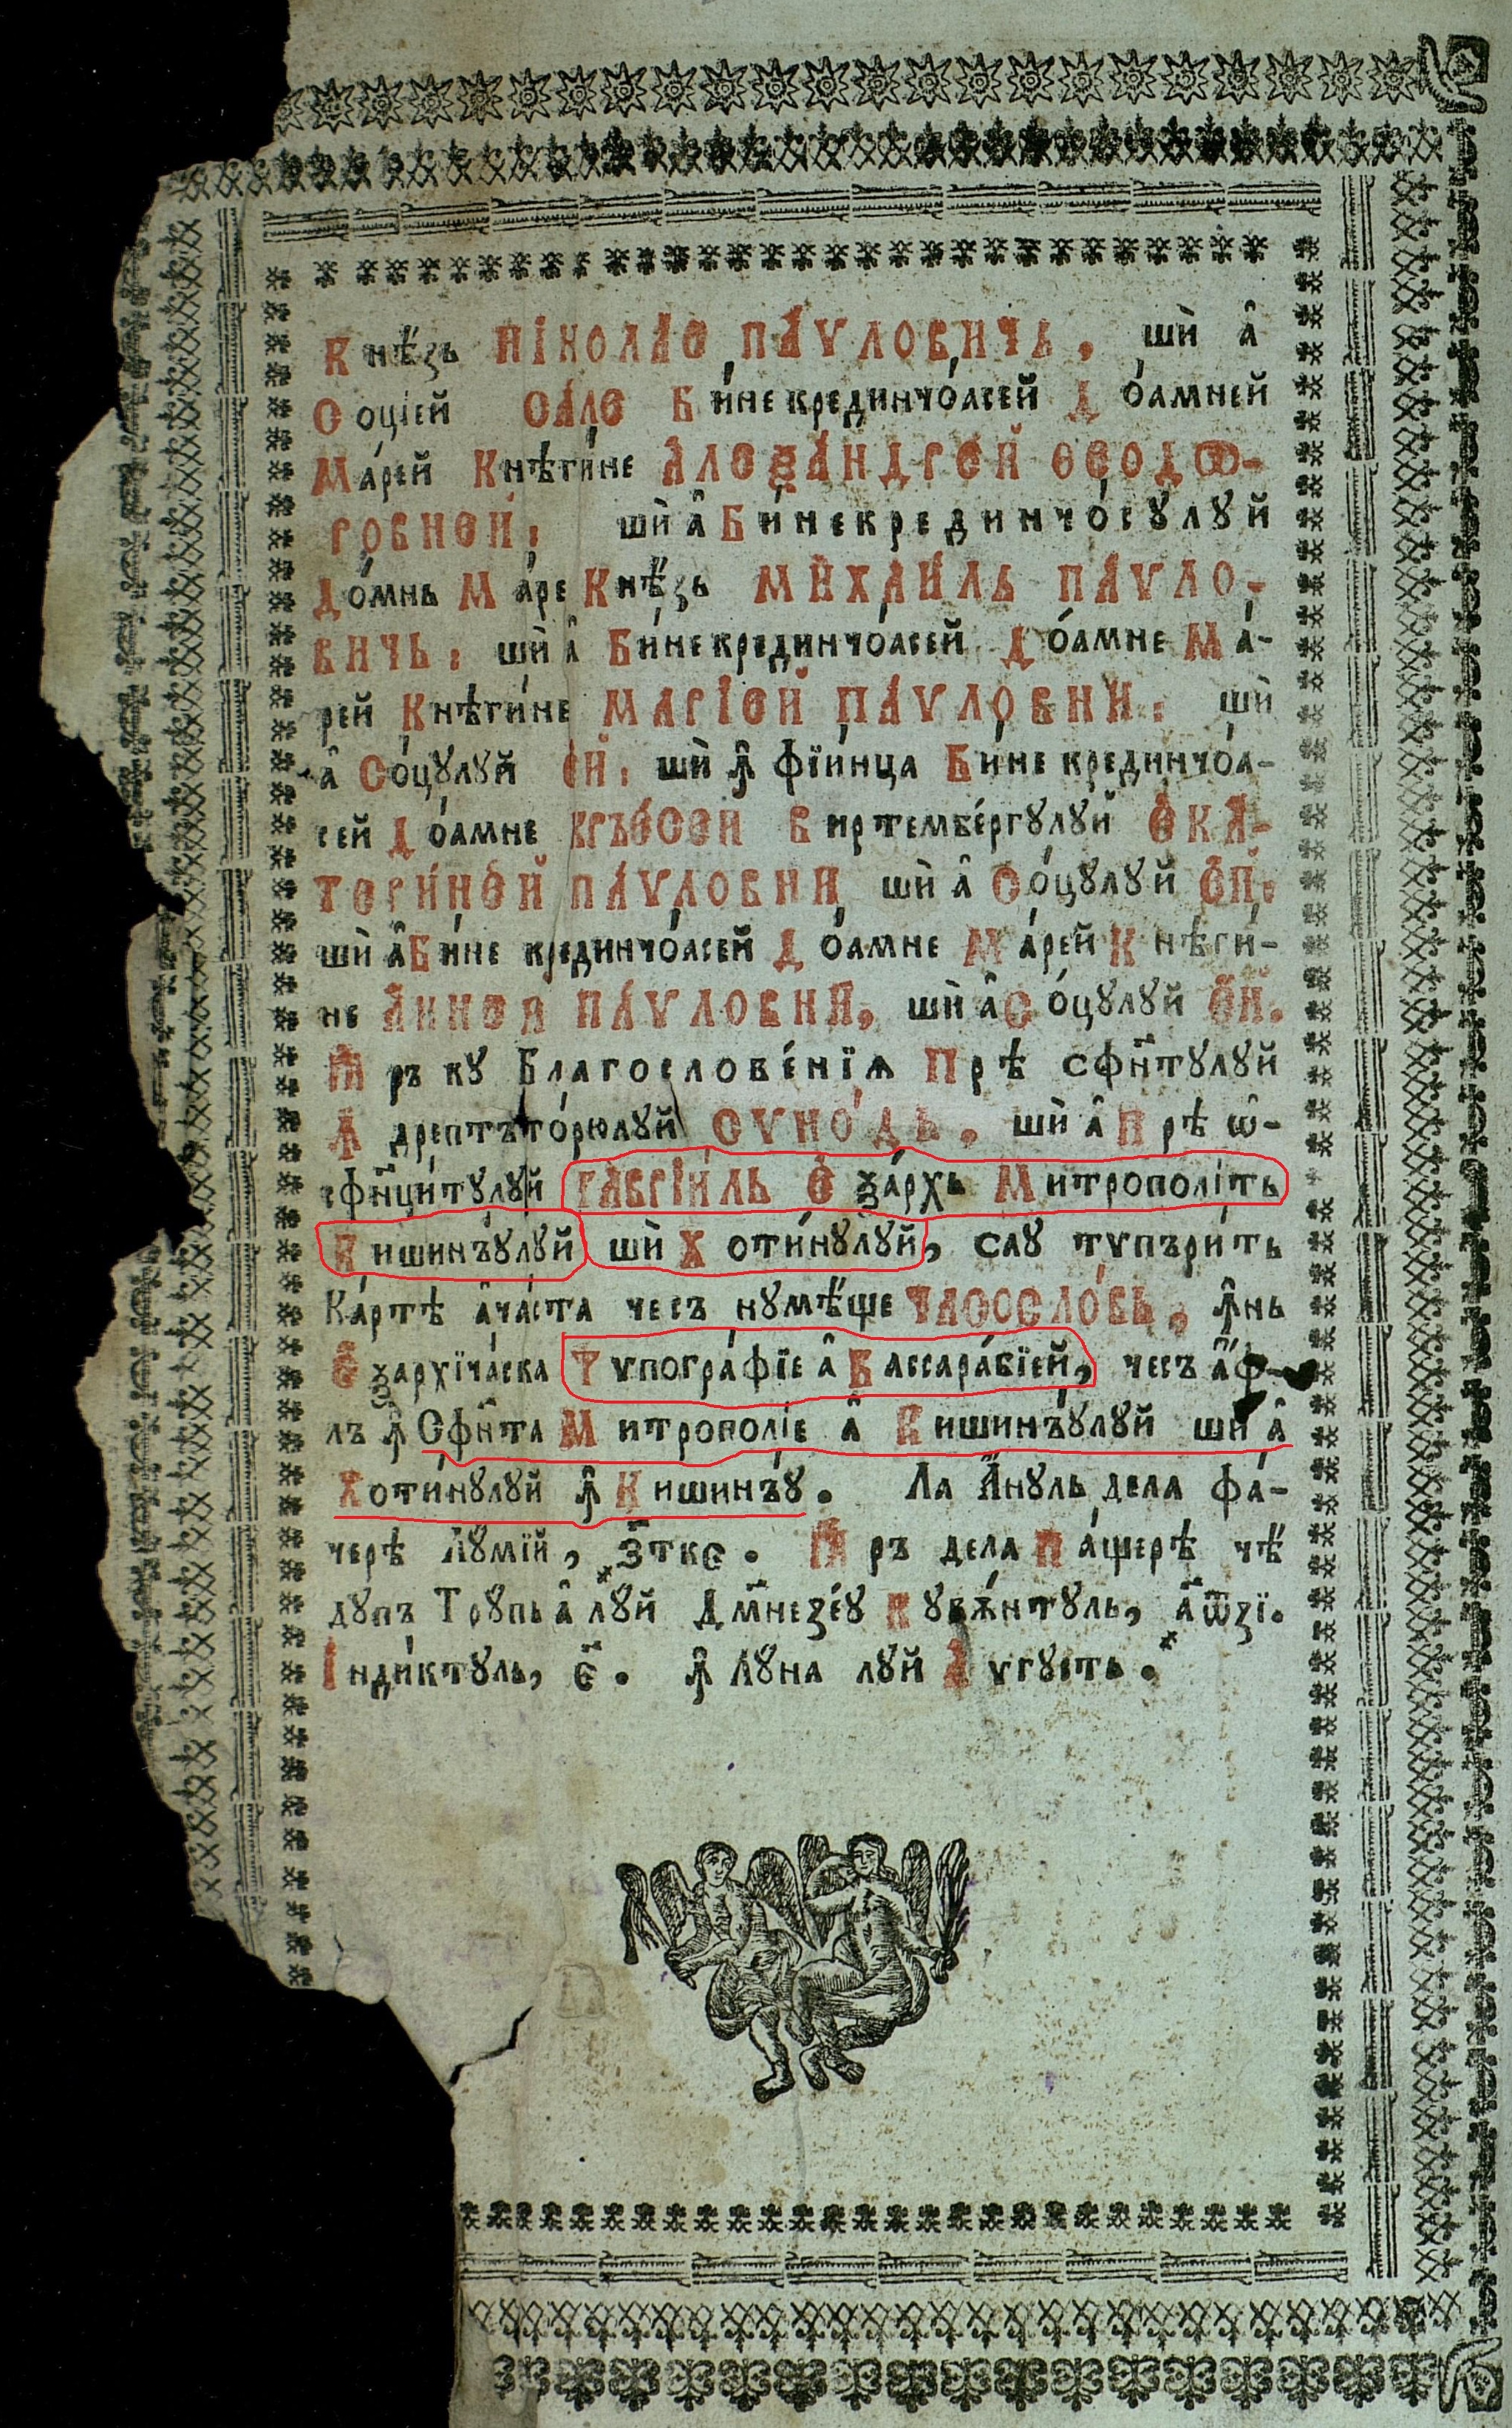 Кнѣзь НІКОЛАЕ ПАѴЛОВИЧЬ, шѝ а̂
Соцїей САЛЕ Бинекрединчоасей Доамней
Марей Кнѣгине АЛЕѮАНДРЕЙ ѲЕОДѠ-
РОВНЕЙ: шѝ а̂ Бинекрединчосꙋлꙋй
Домнь Маре Кнѣзь МИХАИЛЬ ПАѴЛО-
ВИЧЬ: шѝ а̂ Бинекрединчоасей Доамне Ма-
рей Кнѣгине МАРІЕЙ ПАѴЛОВНИ: шѝ
а̂ Соцꙋлꙋй ЕЙ: шѝ ꙟ фїинца Бине крединчоа-
сей Доамне КРЪЕСЕЙ Виртембергꙋлꙋй ЕКА-
ТЕРИНЕЙ ПАѴЛОВНИ, шѝ а̂ Соцꙋлꙋй ЕЙ:
шѝ а̂ Бине крединчоасей Доамне Марей Кнѣги-
не АННЕЙ ПАѴЛОВНИ, шѝ а̂ Соцꙋлꙋй ЕЙ.
Ꙗръ кꙋ Благословенїѧ Прѣ сфн҃тꙋлꙋй
Ꙟдрептъторюлꙋй СѴНОДЬ, шѝ а̂ Прѣ ѡ̂-
сфн҃цитꙋлꙋй ГАВРІИЛЬ Еѯархь Митрополіть
Кишинъꙋлꙋй шѝ Хотинꙋлꙋй, сау тѵпърить
Картѣ ачаста чесъ нꙋмѣще ЧАСОСЛОВЬ, ꙟнь
Еѯархїчаска Тѵпографїе а̂ Бассарабїей, чесъ аф-
лъ ꙟ Сфн҃та Митрополіе а̂ Кишинъꙋлꙋй шѝ а̂
Хотинꙋлꙋй ꙟ Кишинъꙋ. Ла Анꙋль дела фа-
черѣ Лꙋмїй, ҂зткє. Ꙗръ дела Пащерѣ чѣ
дꙋпъ Трꙋпь а̂ лꙋй Дм҃незеꙋ Кꙋвѫнтꙋль, ҂аѿзї.
Індиктꙋль, є҃. ꙟ Лꙋна лꙋй Аѵгꙋсть.